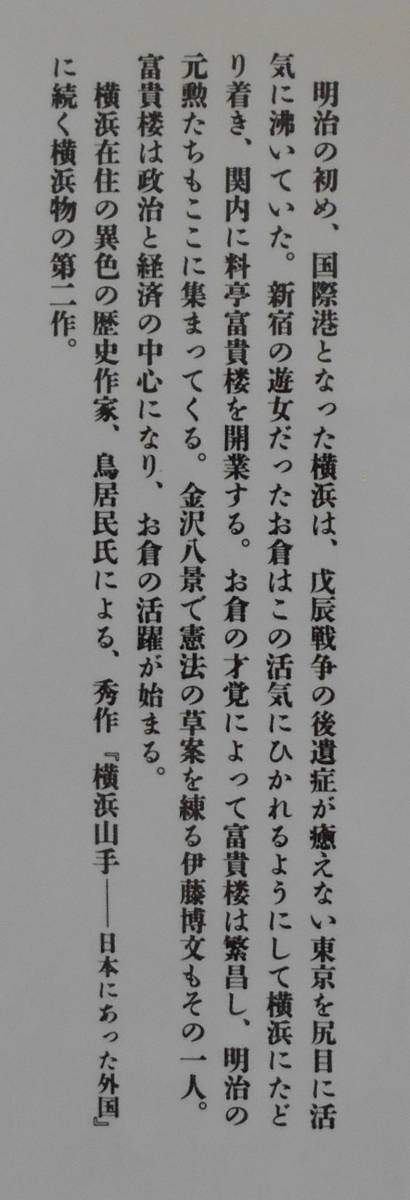 明治の初め、国際港となった横浜は、戊辰戦争の後遺症が癒えない東京を尻目に活
気に沸いていた。新宿の遊女だったお倉はこの活気にひかれるようにして横浜にたど
り着き、関内に料亭富貴楼を開業する。お倉の才覚によって富貴楼は繁昌し、明治の
元勲たちもここに集まってくる。金沢八景で憲法の草案を練る伊藤博文もその一人。
富貴楼は政治と経済の中心になり、お倉の活躍が始まる。
横浜在住の異色の歴史作家、鳥居民氏による、秀作『横浜山手――日本にあった外国』
に続く横浜物の第二作。